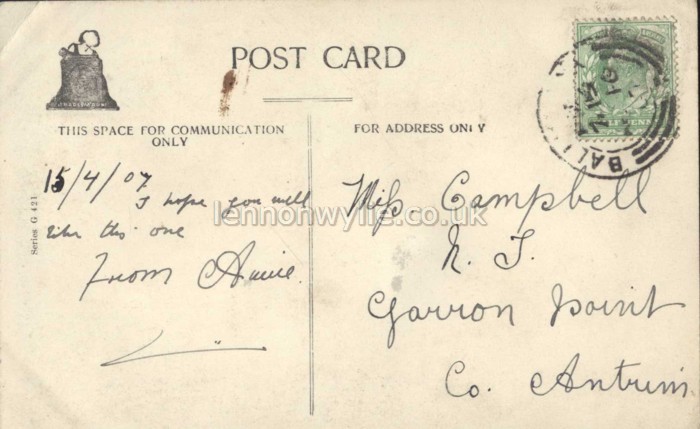 POST CARD
THIS SPACE FOR COMMUNICATION
ONLY
FOR ADDRESS ONLY
Series G 421
15/4/07
I hope you will
like this one
From Annie.
Miss. Campbell
N. S.
Garron Point
Co. Antrim
BALL
lennonwylie.co.uk